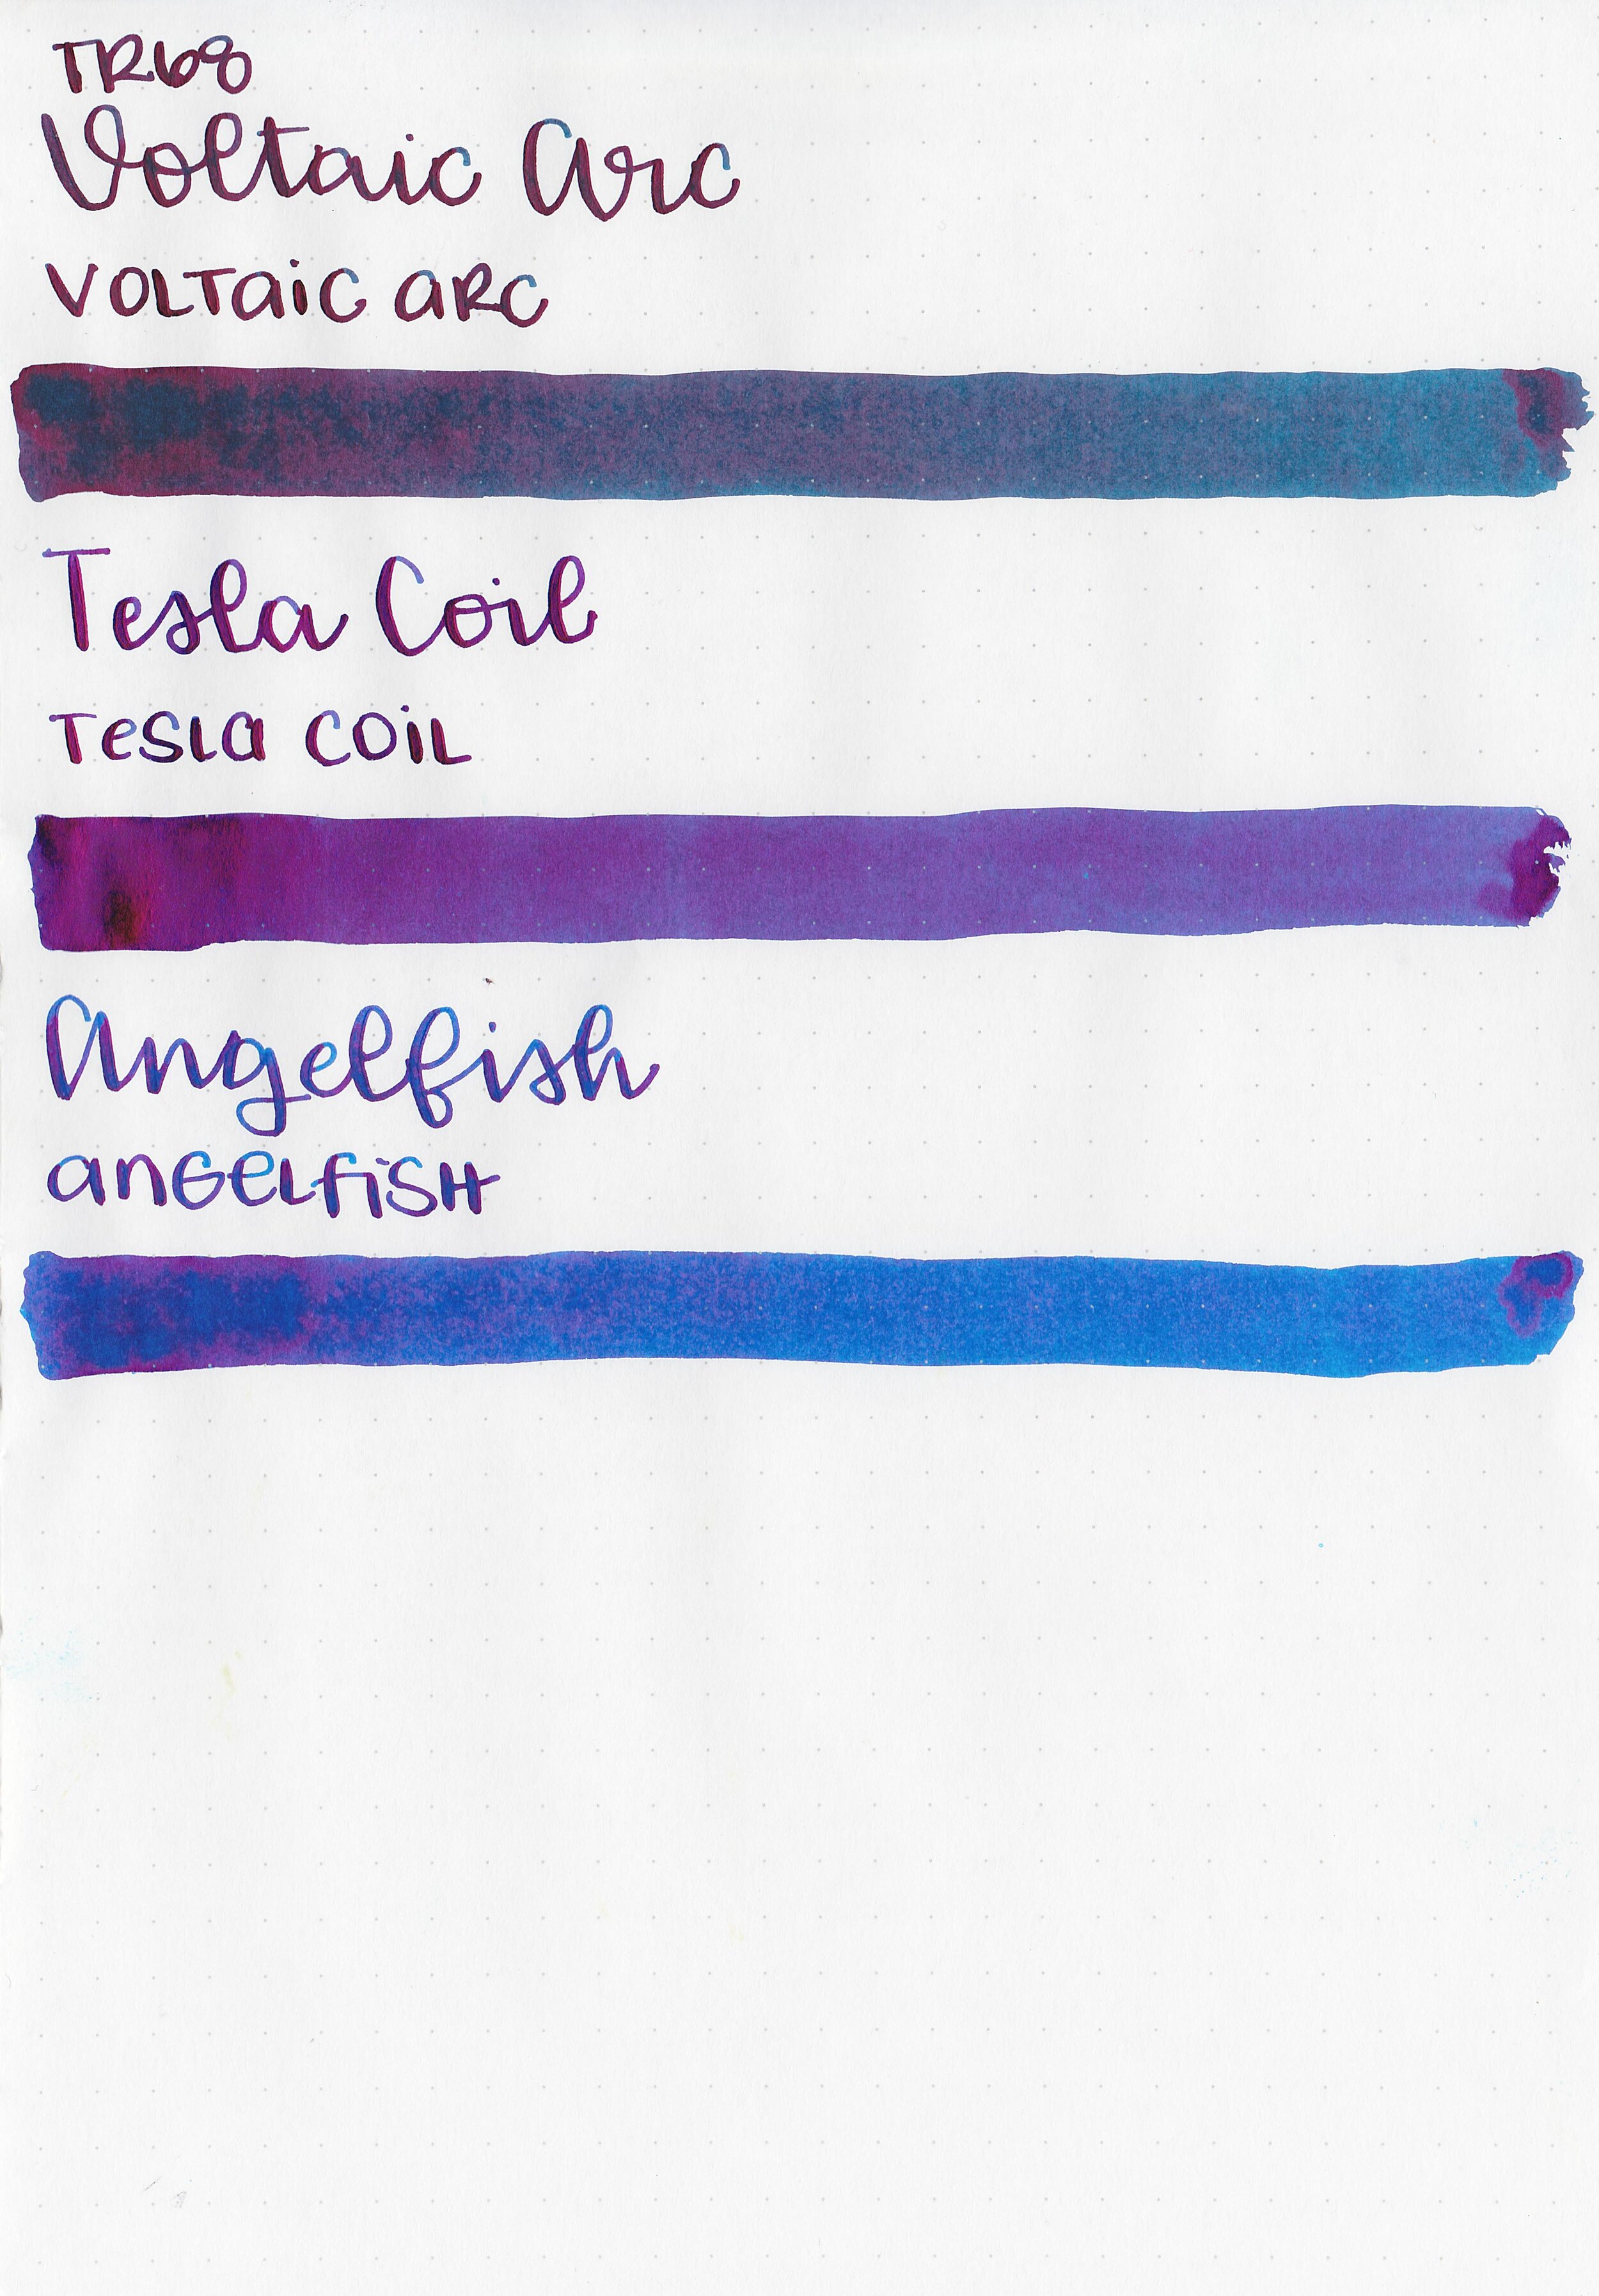 TR68
Voltaic Arc
VOLTAiC aRC
Tesla Coil
TeSLa COiL
Angelfish
anGeLFiSH